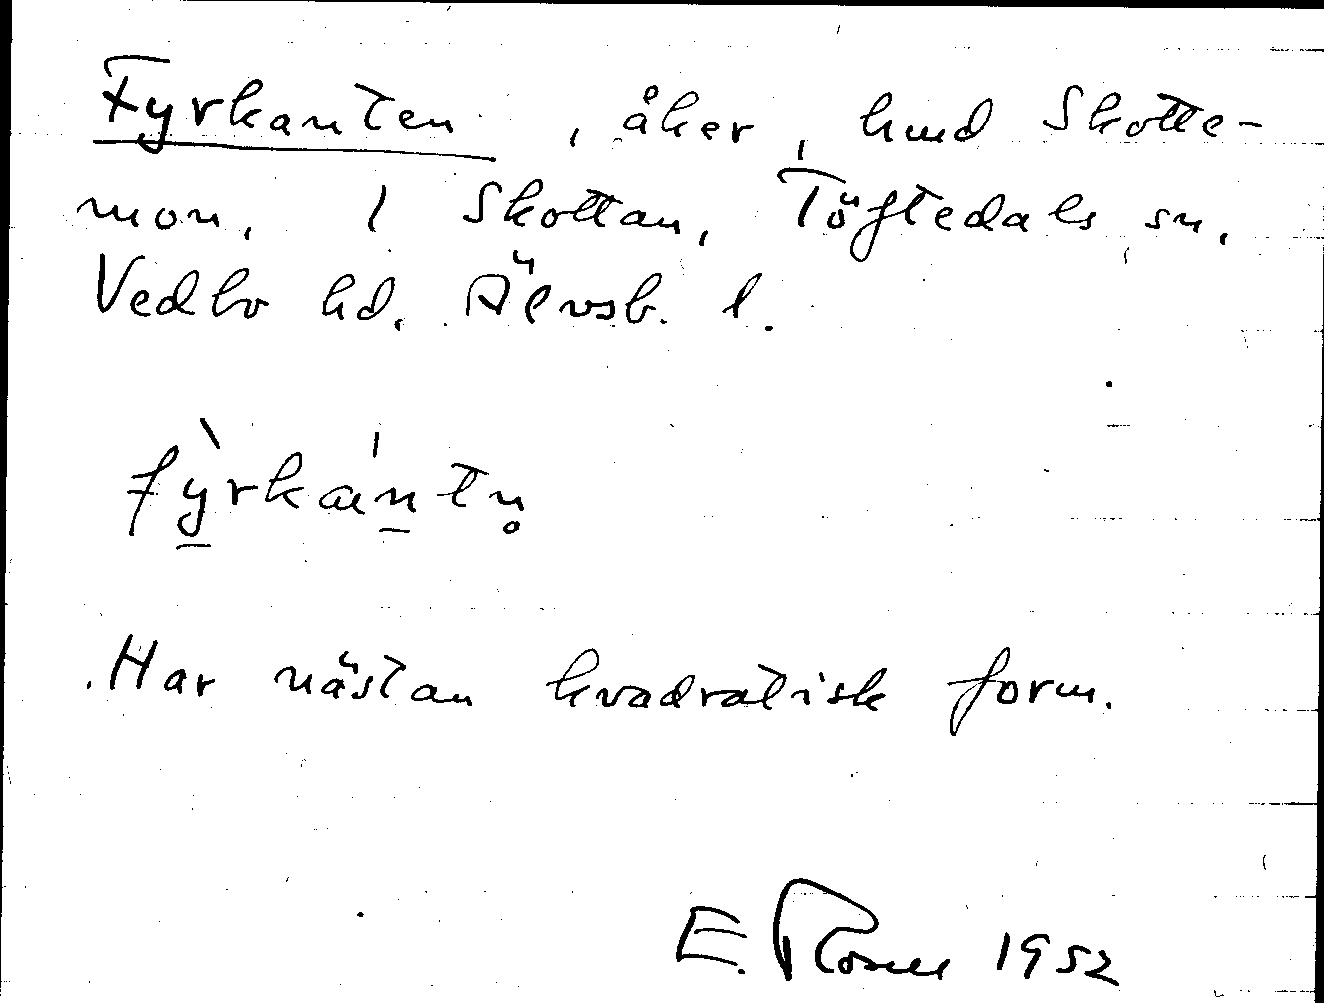 Fyrkanten, åker, hmd Skotte-
mon, 1 Skottan, Töftedals sn.
Vedbo hd. Älvsb. l.
fỳ̲rkán̲tn̥
Har nästan kvadratisk form.
E. 1952